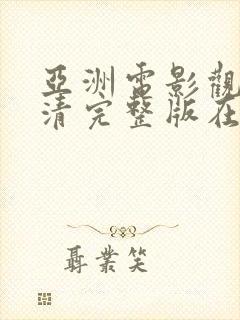 亞洲電影觀
清完整版在
聶業笑